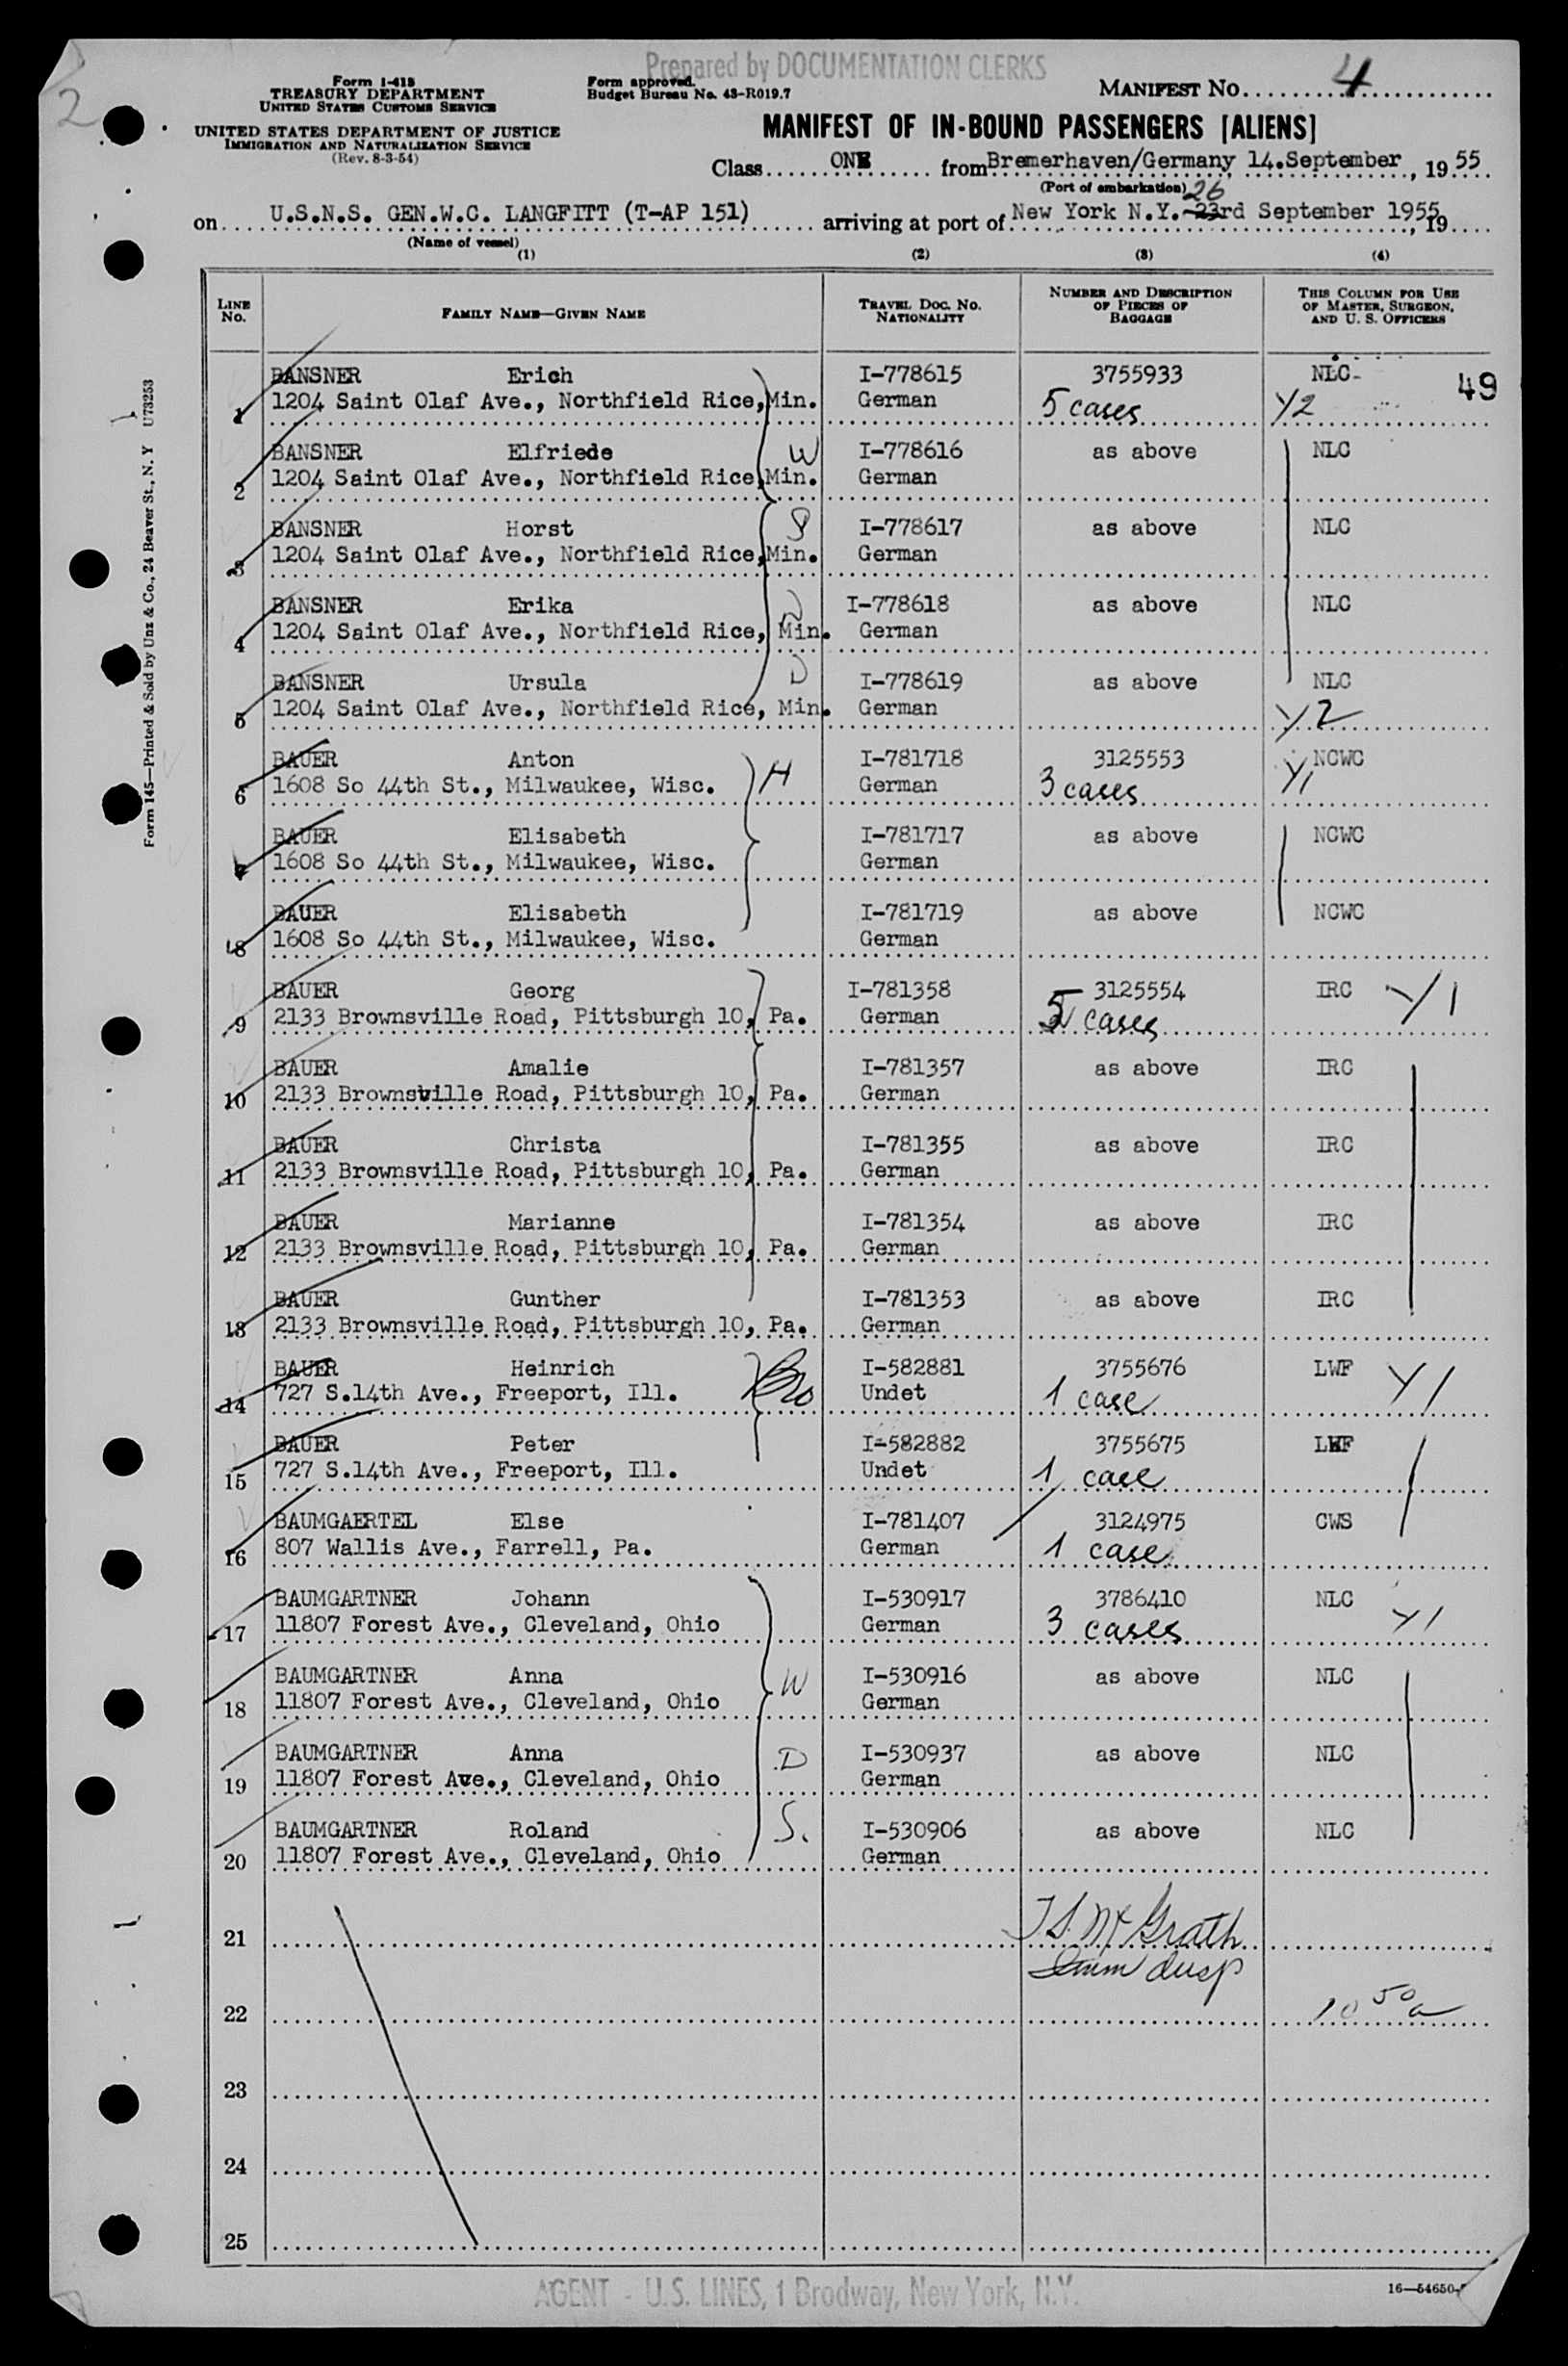 Prepared by DOCUMENTATION CLERKS
2
Form I-418
TREASURY DEPARTMENT
UNITED STATES CUSTOMS SERVICE
UNITED STATES DEPARTMENT OF JUSTICE
IMMIGRATION AND NATURALIZATION SERVICE
(Rev. 8-3-54)
Form approved.
Budget Bureau No. 43-R019.7
MANIFEST No. 4
MANIFEST OF IN-BOUND PASSENGERS [ALIENS]
Class ONE from Bremerhaven/Germany 14.September, 1955
(Port of embarkation)
26
on U.S.N.S. GEN.W.C. LANGFITT (T-AP 151) arriving at port of New York N.Y. 23rd September 1955, 19
(Name of vessel)
(1) (2) (3) (4)
LINE No. FAMILY NAME—GIVEN NAME TRAVEL DOC. NO. NATIONALITY NUMBER AND DESCRIPTION OF PIECES OF BAGGAGE THIS COLUMN FOR USE OF MASTER, SURGEON, AND U. S. OFFICERS
BANSNER Erich I-778615 3755933 NLC 49
1 1204 Saint Olaf Ave., Northfield Rice, Min. German 5 cases Y2
BANSNER Elfriede W I-778616 as above NLC
2 1204 Saint Olaf Ave., Northfield Rice, Min. German
BANSNER Horst S I-778617 as above NLC
3 1204 Saint Olaf Ave., Northfield Rice, Min. German
BANSNER Erika D I-778618 as above NLC
4 1204 Saint Olaf Ave., Northfield Rice, Min. German
BANSNER Ursula D I-778619 as above NLC
5 1204 Saint Olaf Ave., Northfield Rice, Min. German Y2
BAUER Anton H I-781718 3125553 NCWC
6 1608 So 44th St., Milwaukee, Wisc. German 3 cases Y1
BAUER Elisabeth I-781717 as above NCWC
7 1608 So 44th St., Milwaukee, Wisc. German
BAUER Elisabeth I-781719 as above NCWC
8 1608 So 44th St., Milwaukee, Wisc. German
BAUER Georg I-781358 3125554 IRC Y1
9 2133 Brownsville Road, Pittsburgh 10, Pa. German 5 cases
BAUER Amalie I-781357 as above IRC
10 2133 Brownsville Road, Pittsburgh 10, Pa. German
BAUER Christa I-781355 as above IRC
11 2133 Brownsville Road, Pittsburgh 10, Pa. German
BAUER Marianne I-781354 as above IRC
12 2133 Brownsville Road, Pittsburgh 10, Pa. German
BAUER Gunther I-781353 as above IRC
13 2133 Brownsville Road, Pittsburgh 10, Pa. German
BAUER Heinrich Bro I-582881 3755676 LWF Y1
14 727 S.14th Ave., Freeport, Ill. Undet 1 case
BAUER Peter I-582882 3755675 LWF
15 727 S.14th Ave., Freeport, Ill. Undet 1 case
BAUMGAERTEL Else I-781407 3124975 CWS
16 807 Wallis Ave., Farrell, Pa. German 1 case
BAUMGARTNER Johann I-530917 3786410 NLC
17 11807 Forest Ave., Cleveland, Ohio German 3 cases Y1
BAUMGARTNER Anna W I-530916 as above NLC
18 11807 Forest Ave., Cleveland, Ohio German
BAUMGARTNER Anna D I-530937 as above NLC
19 11807 Forest Ave., Cleveland, Ohio German
BAUMGARTNER Roland S. I-530906 as above NLC
20 11807 Forest Ave., Cleveland, Ohio German
21 McGrath
Imm Insp
22 10 50 a
23
24
25
AGENT - U.S. LINES, 1 Brodway, New York, N.Y.
Form 145—Printed & Sold by Unz & Co., 24 Beaver St., N. Y U73253